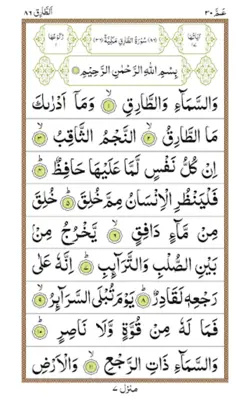 عَمَّ ٣٠ اَلطَّارِق ٨٦
اٰيَاتُهَا ١٧ (٨٦) سُوْرَةُ الطَّارِقِ مَكِّيَّةٌ (٣٦) رُكُوْعُهَا ١
بِسْمِ اللّٰهِ الرَّحْمٰنِ الرَّحِيْمِ
وَالسَّمَآءِ وَالطَّارِقِ ۝١ وَمَآ اَدْرٰىكَ
مَا الطَّارِقُ ۝٢ النَّجْمُ الثَّاقِبُ ۝٣
اِنْ كُلُّ نَفْسٍ لَّمَّا عَلَيْهَا حَافِظٌ ۝٤
فَلْيَنْظُرِ الْاِنْسَانُ مِمَّ خُلِقَ ۝٥ خُلِقَ
مِنْ مَّآءٍ دَافِقٍ ۝٦ يَّخْرُجُ مِنْۢ
بَيْنِ الصُّلْبِ وَالتَّرَآئِبِ ۝٧ اِنَّهٗ عَلٰى
رَجْعِهٖ لَقَادِرٌ ۝٨ يَوْمَ تُبْلَى السَّرَآئِرُ ۝٩
فَمَا لَهٗ مِنْ قُوَّةٍ وَّلَا نَاصِرٍ ۝١٠
وَالسَّمَآءِ ذَاتِ الرَّجْعِ ۝١١ وَالْاَرْضِ
منزل ٧